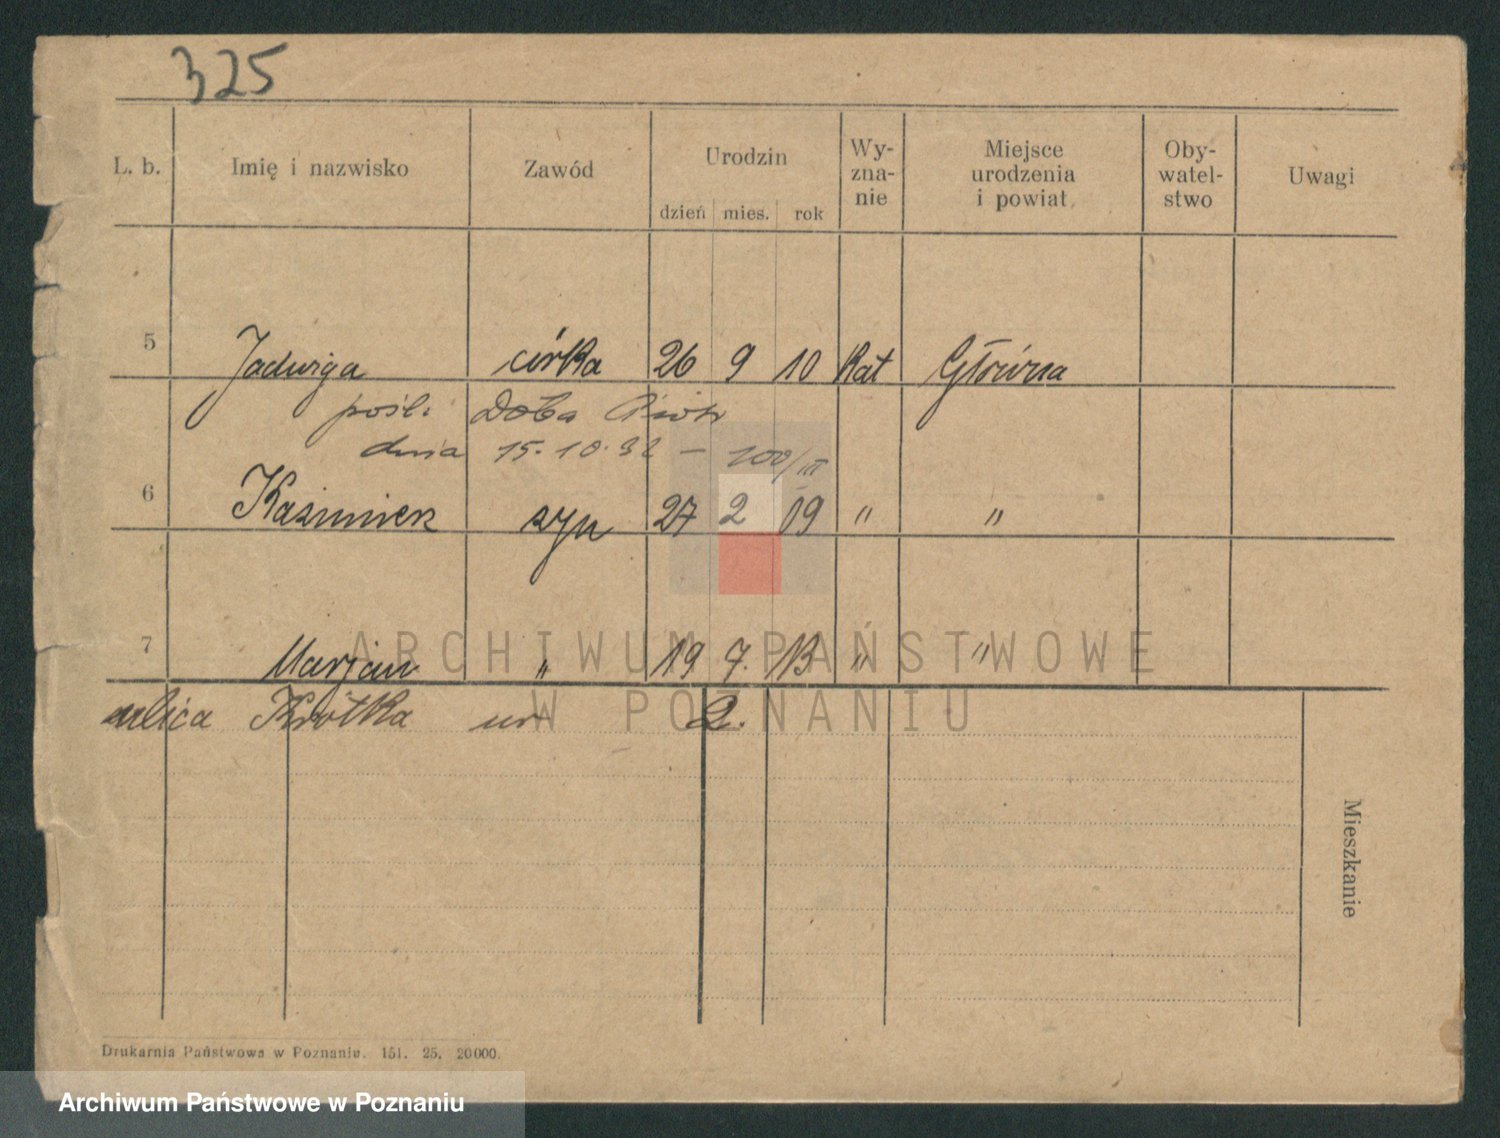 325
L. b. Imię i nazwisko Zawód Urodzin Wy-zna-nie Miejsce urodzenia i powiat Oby-watel-stwo Uwagi
dzień mies. rok
5 Jadwiga córka 26 9 10 Kat Główna
pośl. Doba Piotr
dnia 15.10.32 – 100/III
6 Kazimierz syn 27 2 09 " "
7 Marjan " 19 7. 13 " "
ulica Krótka nr 2.
Mieszkanie
Drukarnia Państwowa w Poznaniu. 151. 25. 20000.
ARCHIWUM PAŃSTWOWE
W POZNANIU
Archiwum Państwowe w Poznaniu